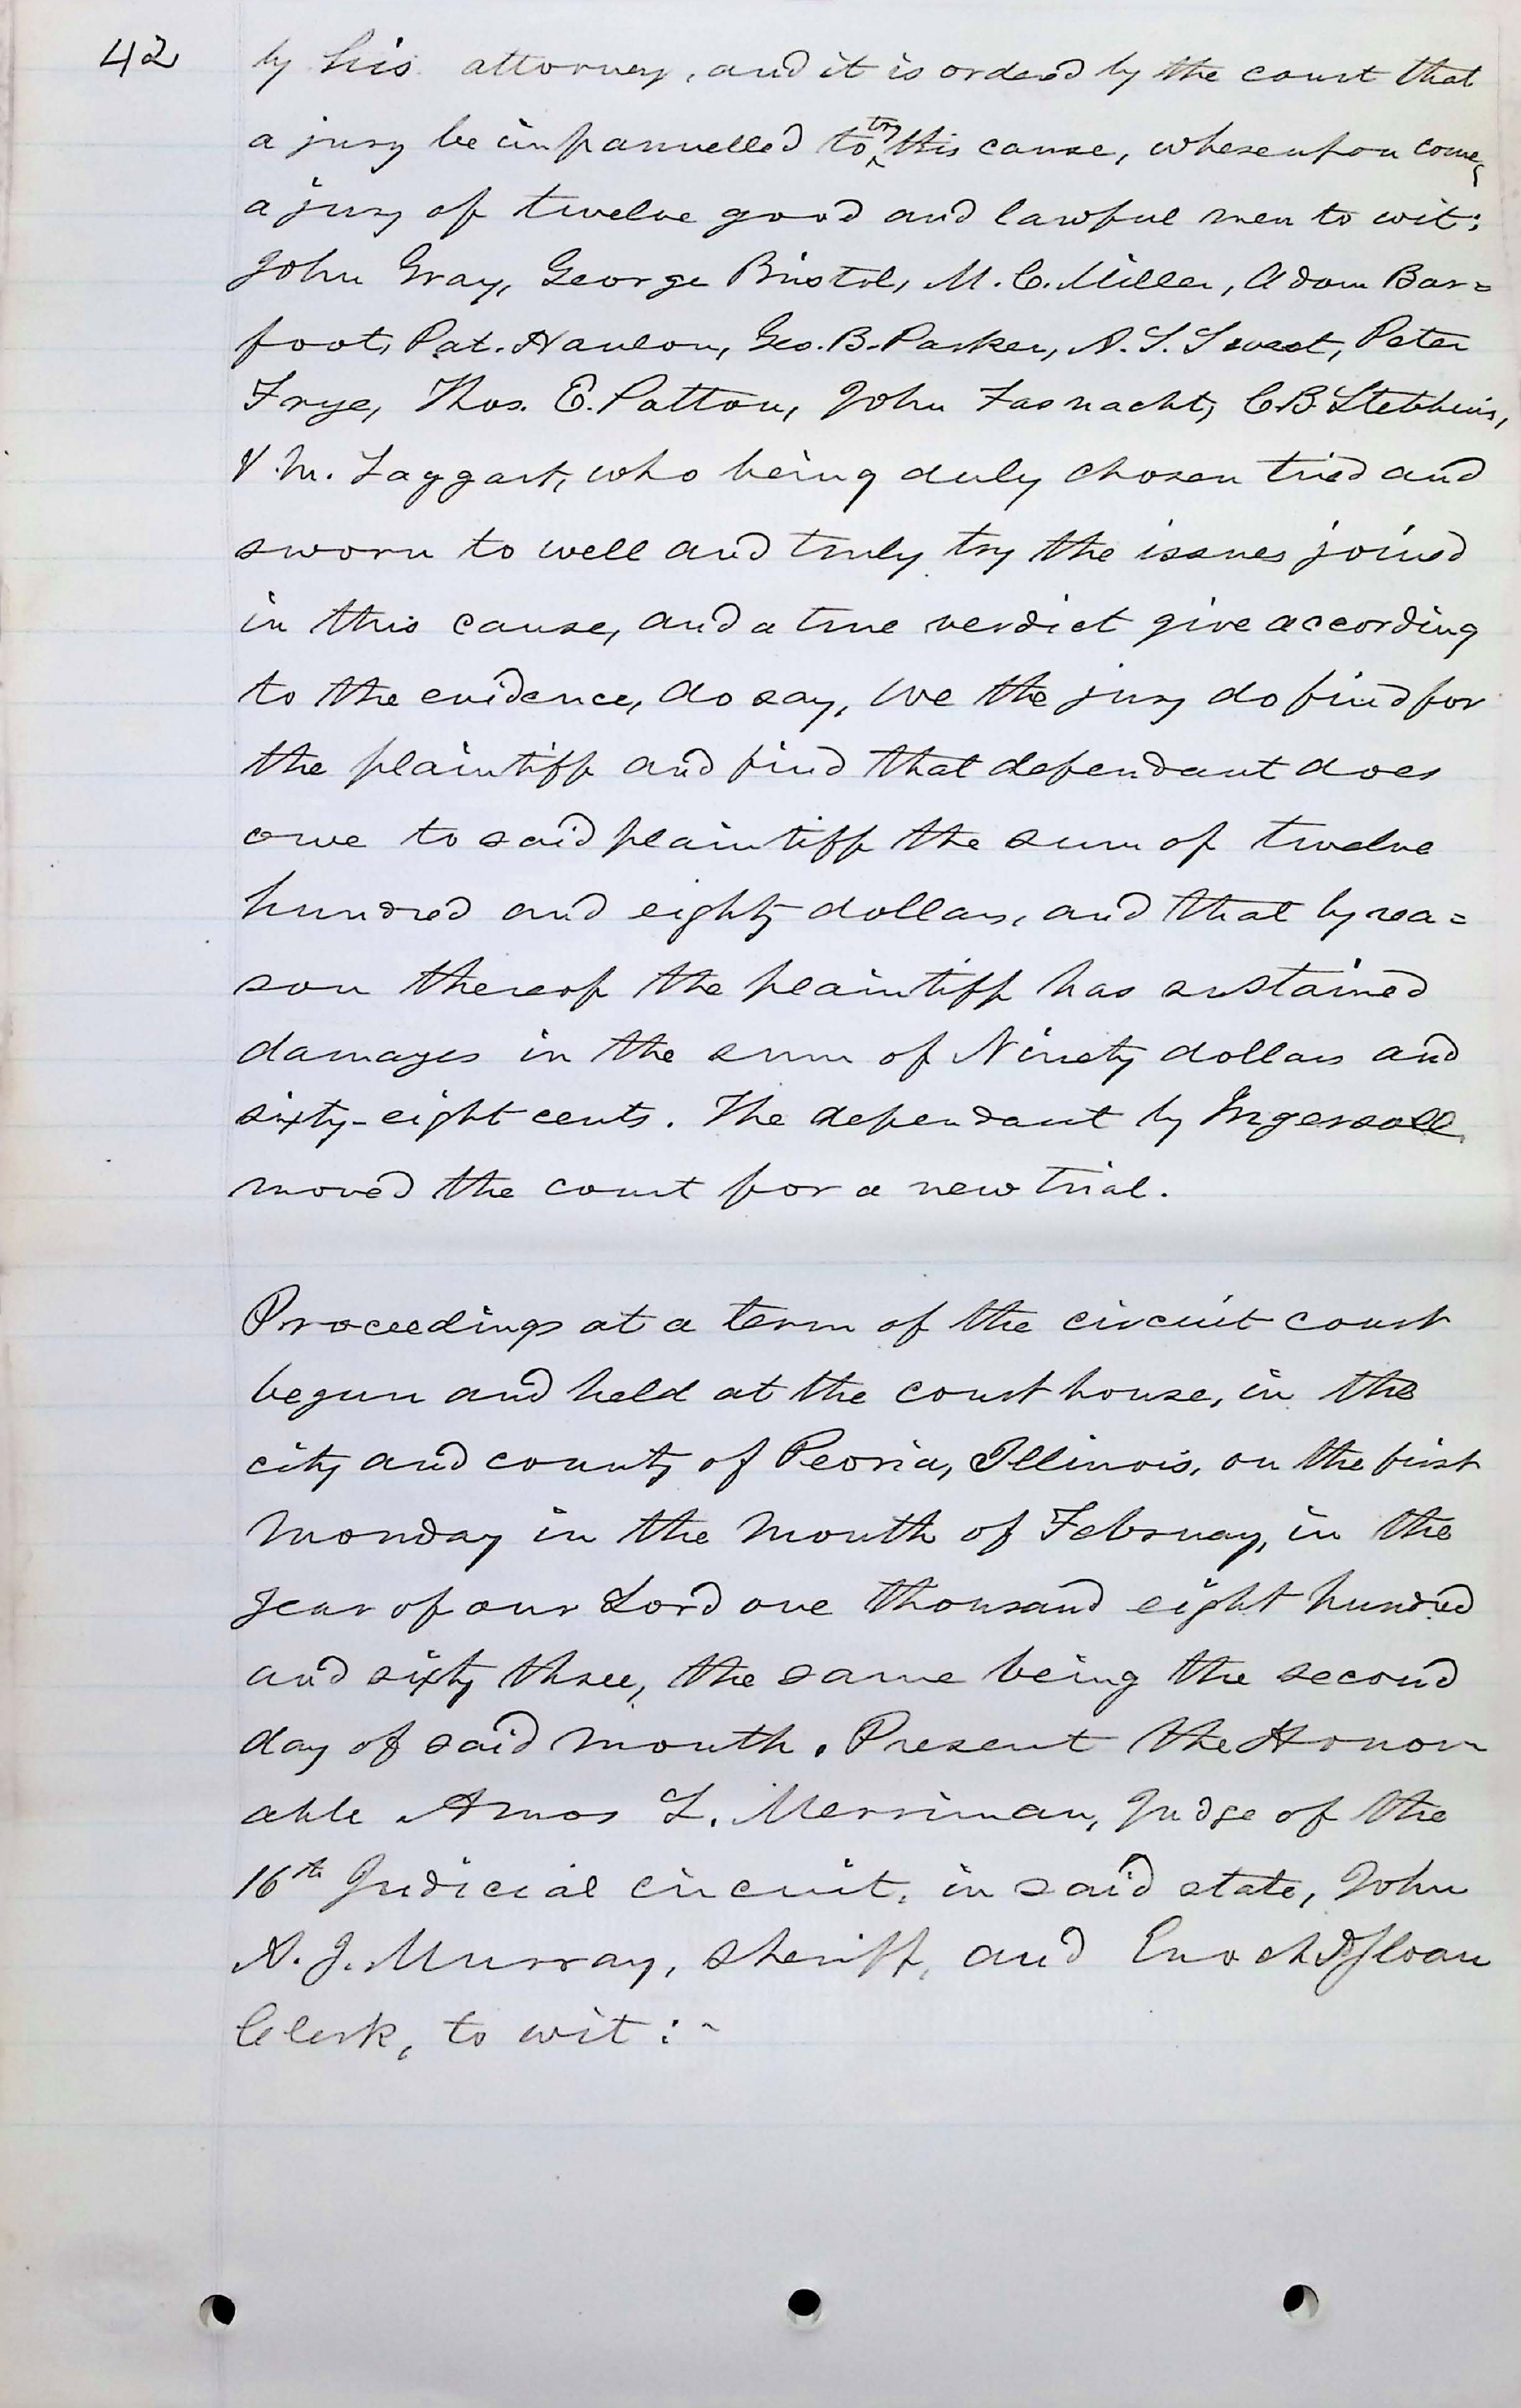 42
by his attorney, and it is ordered by the court that
a jury be impannelled to try this cause, whereupon comes
a jury of twelve good and lawful men to wit:
John Gray, George Bristol, M. C. Miller, Adam Bar=
foot, Pat. Hanlon, Geo. B. Parker, N. S. Sweet, Peter
Frye, Thos. E. Patton, John Fasnacht, C. B. Stebbins,
V. M. Taggart, who being duly chosen tried and
sworn to well and truly try the issues joined
in this cause, and a true verdict give according
to the evidence, do say, We the jury do find for
the plaintiff and find that defendant does
owe to said plaintiff the sum of twelve
hundred and eighty dollars, and that by rea=
son thereof the plaintiff has sustained
damages in the sum of Ninety dollars and
sixty-eight cents. The defendant by Ingersoll
moved the court for a new trial.
Proceedings at a term of the circuit court
begun and held at the court house, in the
city and county of Peoria, Illinois, on the first
Monday in the month of February, in the
year of our Lord one thousand eight hundred
and sixty three, the same being the second
day of said month. Present the Honor
able Amos L. Merriman, Judge of the
16th Judicial circuit, in said state, John
A. J. Murray, sheriff, and Enoch P. Sloan
Clerk, to wit:~